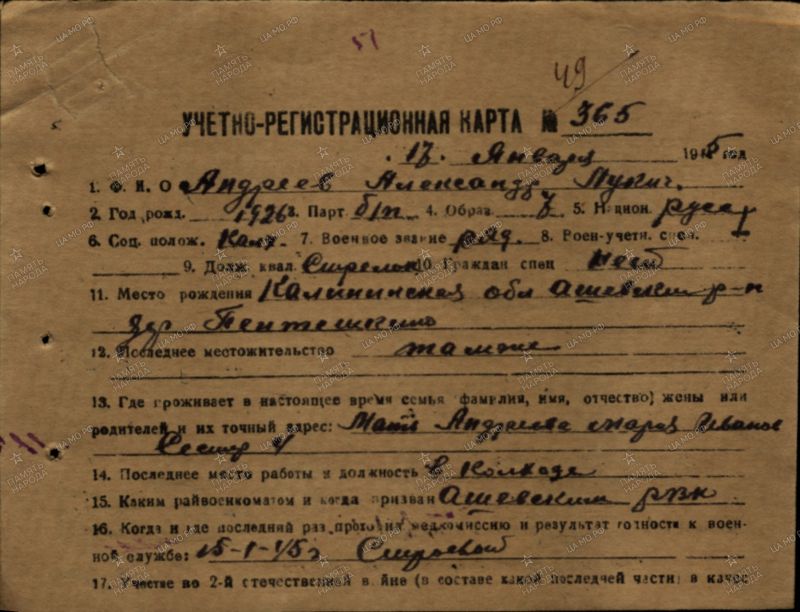 51
49
УЧЕТНО-РЕГИСТРАЦИОННАЯ КАРТА № 365
17. Января 1945 год
1. Ф. И. О Андреев Александр Лукич.
2. Год рожд. 1926 3. Парт б/п 4. Образ. 7 5. Национ. русск
6. Соц. полож. Колх. 7. Военное звание ряд. 8. Воен-учетн. спец. 1
9. Долж квал. Стрелок 10. Граждан спец Нет
11. Место рождения Калининская обл Ашевский р-н
дер
12. Последнее местожительство там же
13. Где проживает в настоящее время семья фамилия, имя, отчество) жены или
родителей и их точный адрес: Мать Андреева Мария Иванов
14. Последнее место работы и должность в Колхозе
15. Каким райвоенкоматом и когда призван Ашевским рвк
16. Когда и где последний раз проходил медкомиссию и результат годности к воен-
ной службе: 15-1-45г Строевой
17. Участие во 2-й отечественной войне (в составе какой последней части) в качес